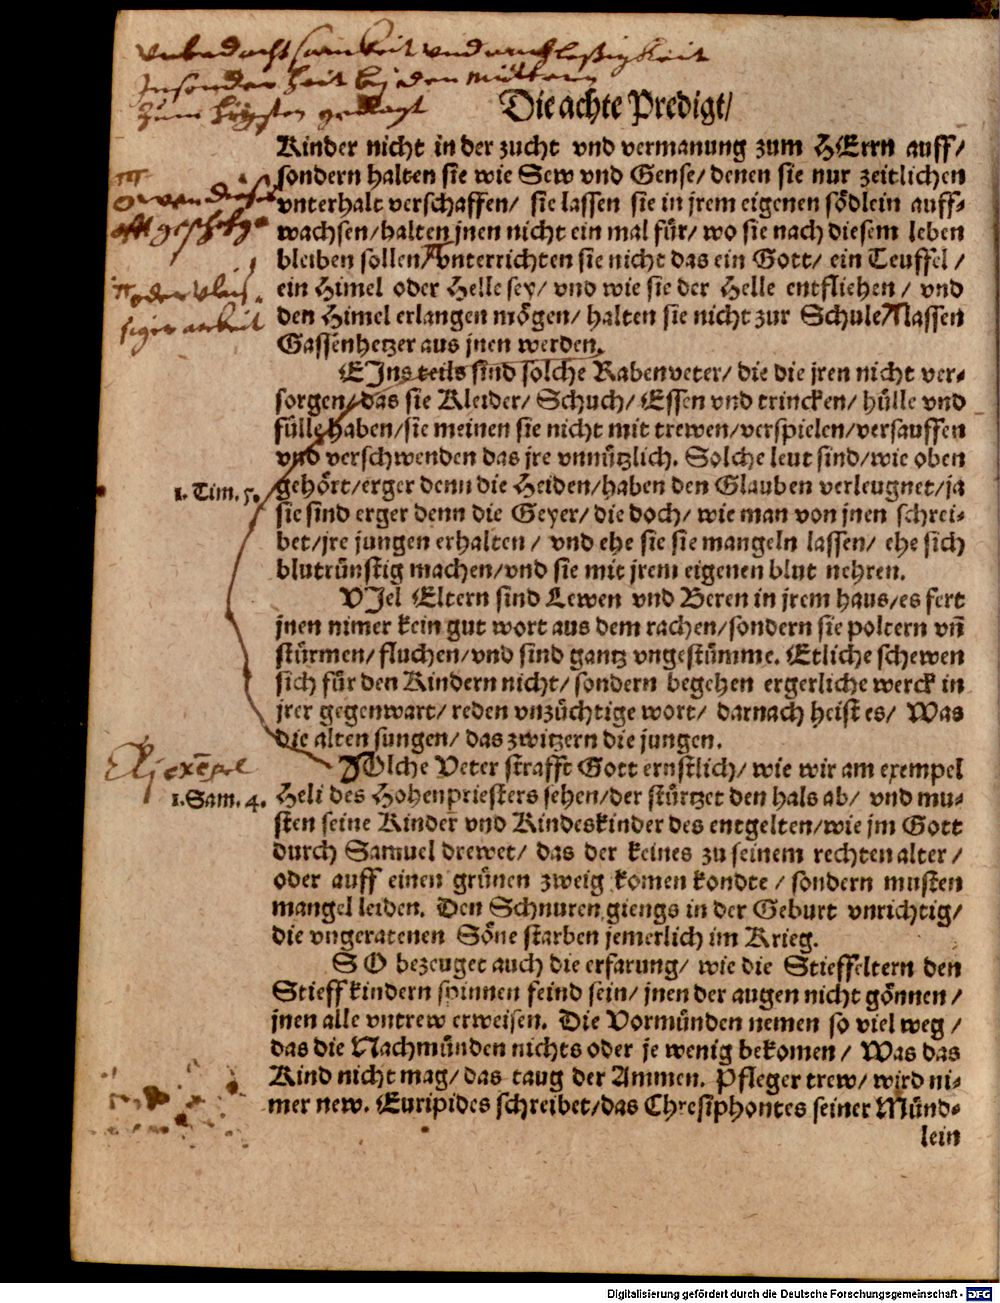 vnbedachtsamkeit vnd nachlessigkeit
Insonderheit bej den müttern
zum
Die achte Predigt/
Kinder nicht in der zucht vnd vermanung zum HErrn auff/
sondern halten sie wie Sew vnd Gense/ denen sie nur zeitlichen
vnterhalt verschaffen/ sie lassen sie in jrem eigenen södlein auff-
wachsen/ halten jnen nicht ein mal für/ wo sie nach diesem leben
bleiben sollen/ vnterrichten sie nicht das ein Gott/ ein Teuffel /
ein Himel oder Helle sey/ vnd wie sie der Helle entfliehen / vnd
den Himel erlangen mögen/ halten sie nicht zur Schule/ lassen
oder vleis-
siger arbeit
Gassenhetzer aus jnen werden.
EJns teils sind solche Rabenveter/ die die jren nicht ver-
sorgen/ das sie Kleider/ Schuch/ Essen vnd trincken/ hülle vnd
fülle haben/ sie meinen sie nicht mit trewen/ verspielen/ versauffen
vnd verschwenden das jre vnnützlich. Solche leut sind/ wie oben
1. Tim. 5.
gehört/ erger denn die Heiden/ haben den Glauben verleugnet/ ja
sie sind erger denn die Geyer/ die doch/ wie man von jnen schrei-
bet/ jre jungen erhalten / vnd ehe sie sie mangeln lassen/ ehe sich
blutrünstig machen/ vnd sie mit jrem eigenen blut nehren.
VJel Eltern sind Lewen vnd Beren in jrem haus/ es fert
jnen nimer kein gut wort aus dem rachen/ sondern sie poltern vñ
stürmen/ fluchen/ vnd sind gantz vngestümme. Etliche schewen
sich für den Kindern nicht/ sondern begehen ergerliche werck in
jrer gegenwart/ reden vnzüchtige wort/ darnach heist es/ Was
die alten sungen/ das zwitzern die jungen.
SOlche Veter strafft Gott ernstlich/ wie wir am exempel
1. Sam. 4.
Heli des Hohenpriesters sehen/ der stürtzet den hals ab/ vnd mu-
sten seine Kinder vnd Kindeskinder des entgelten/ wie jm Gott
durch Samuel drewet/ das der keines zu seinem rechten alter /
oder auff einen grünen zweig komen kondte / sondern musten
mangel leiden. Den Schnuren giengs in der Geburt vnrichtig/
die vngeratenen Söne starben jemerlich im Krieg.
SO bezeuget auch die erfarung/ wie die Stieffeltern den
Stieffkindern spinnen feind sein/ jnen der augen nicht gönnen /
jnen alle vntrew erweisen. Die Vormünden nemen so viel weg /
das die Nachmünden nichts oder je wenig bekomen / Was das
Kind nicht mag/ das taug der Ammen. Pfleger trew/ wird ni-
mer new. Euripides schreibet/ das Chresiphontes seiner Münd-
lein
Digitalisierung gefördert durch die Deutsche Forschungsgemeinschaft - DFG